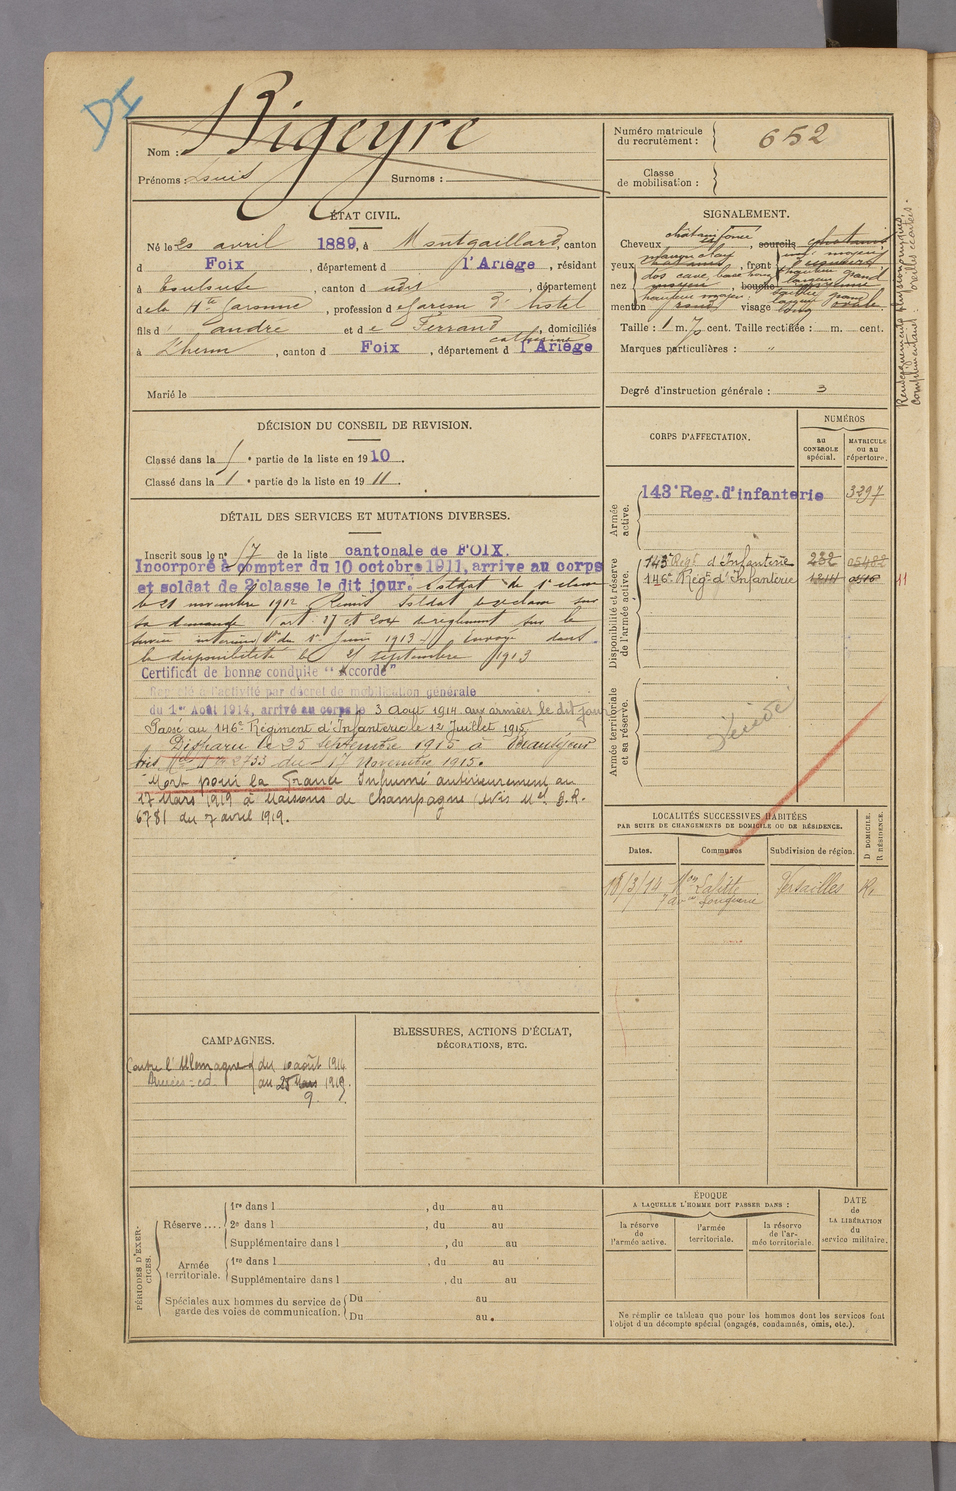 DI
Nom : Rigeyre
Prénoms : Louis Surnoms :
Numéro matricule du recrutement : 652
Classe de mobilisation :
ÉTAT CIVIL.
Né le 20 avril 1889, à Montgaillard, canton
d Foix, département d l'Ariège, résidant
à Toulouse, canton d nord, département
de la Hte Garonne, profession de garçon d'hôtel
fils d' andré et de Ferrand catherine, domiciliés
à Lherm, canton d Foix, département d l'Ariège
Marié le
SIGNALEMENT.
Cheveux châtain foncé sourcils châtains
yeux front
nez dos cave, base bouche moyenne
menton rond visage ovale
Taille : 1 m. 7 cent. Taille rectifiée : m. cent.
Marques particulières : "
Degré d'instruction générale : 3
Renseignements physionomiques
complémentaires : oreilles écartées.
DÉCISION DU CONSEIL DE REVISION.
Classé dans la partie de la liste en 1910.
Classé dans la 1e partie de la liste en 1911.
DÉTAIL DES SERVICES ET MUTATIONS DIVERSES.
Inscrit sous le no 17 de la liste cantonale de FOIX.
Incorporé à compter du 10 octobre 1911, arrivé au corps
et soldat de 2e classe le dit jour. Soldat de 1e classe
le 21 novembre 1912 Remis soldat de 2e classe sur
sa demande (art. 17 et 204 du règlement sur le
service intérieur du 1er Juin 1913 Envoyé dans
la disponibilité le 21 septembre 1913
Certificat de bonne conduite "Accordé"
Rappelé à l'activité par décret de mobilisation générale
du 1er Août 1914, arrivé au corps le 3 Août 1914 aux armées le dit jour
Passé au 146e Régiment d'Infanterie le 12 Juillet 1915
Disparu le 25 septembre 1915 à Beauséjour
Avis 2733 du 17 Novembre 1915.
Mort pour la France Inhumé antérieurement au
17 Mars 1919 à Maisons de Champagne (Avis Mel B.R.
6781 du 7 avril 1919.
CORPS D'AFFECTATION.
NUMÉROS
au CONTROLE spécial.
MATRICULE ou au répertoire.
Armée active.
143e Reg. d'infanterie 3297
Disponibilité et réserve de l'armée active.
143e Régt d'Infanterie 232 05482
146e Régt d'Infanterie 11
Armée territoriale et sa réserve.
LOCALITÉS SUCCESSIVES HABITÉES
PAR SUITE DE CHANGEMENTS DE DOMICILE OU DE RÉSIDENCE.
Dates. Communes Subdivision de région. D DOMICILE. R RÉSIDENCE.
18/3/14 Mon Lafitte Versailles R.
7 avue Longueil
CAMPAGNES.
Contre l'Allemagne du 10 août 1914
au 25 Mars 1919.
9.
BLESSURES, ACTIONS D'ÉCLAT,
DÉCORATIONS, ETC.
PÉRIODES D'EXERCICES.
Réserve .... 1re dans l , du au
2e dans l , du au
Supplémentaire dans l , du au
Armée territoriale. 1re dans l , du au
Supplémentaire dans l , du au
Spéciales aux hommes du service de garde des voies de communication. Du au
Du au
ÉPOQUE
A LAQUELLE L'HOMME DOIT PASSER DANS :
la réserve de l'armée active. l'armée territoriale. la réserve de l'armée territoriale.
DATE de LA LIBÉRATION du service militaire.
Ne remplir ce tableau que pour les hommes dont les services font
l'objet d'un décompte spécial (engagés, condamnés, omis, etc.).